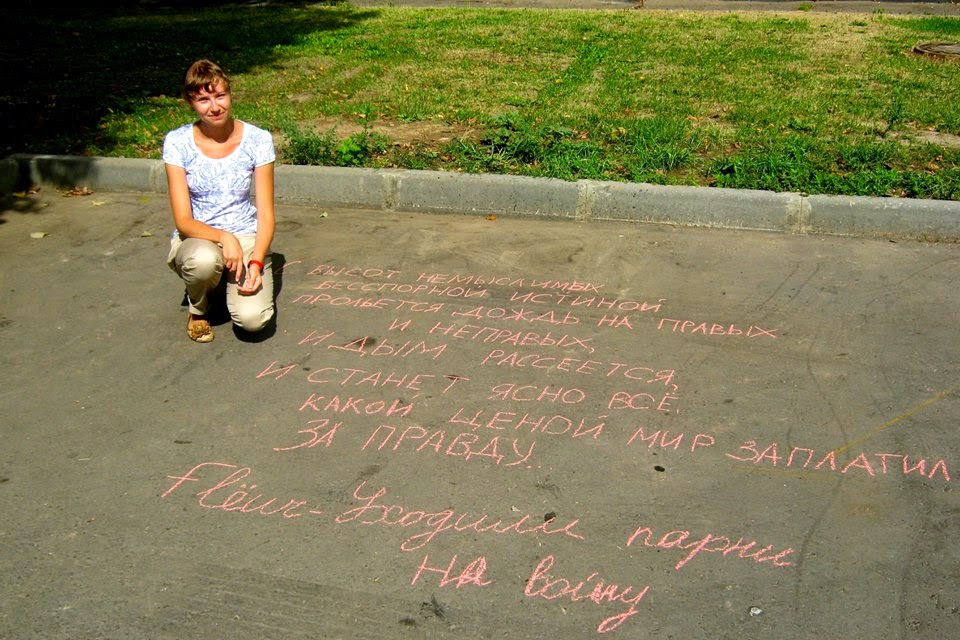 С ВЫСОТ НЕМЫСЛИМЫХ
БЕССПОРНОЙ ИСТИНОЙ
ПРОЛЬЕТСЯ ДОЖДЬ НА ПРАВЫХ
И НЕПРАВЫХ,
И ДЫМ РАССЕЕТСЯ,
И СТАНЕТ ЯСНО ВСЁ,
КАКОЙ ЦЕНОЙ МИР ЗАПЛАТИЛ
ЗА ПРАВДУ.
Flëur - Уходили парни
на войну